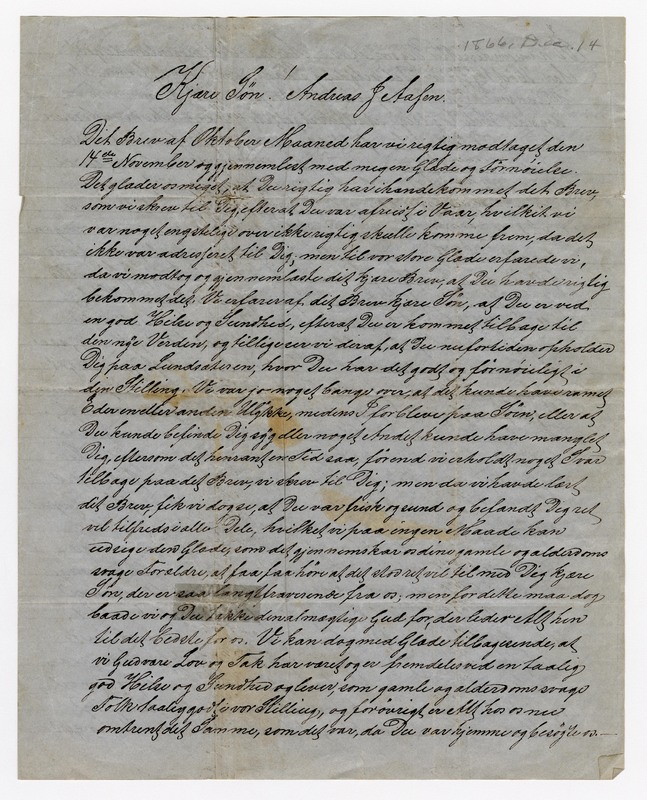 1866, Dec. 14
Kjære Søn! Andreas J Aasen.
Dit Brev af Oktober Maaned har vi rigtig modtaget den
14de November og gjennemlæst med megen Glæde og Fornøielse.
Det glæder os meget, at Du rigtig har ihændekommet det Brev,
som vi skrev til Dig, efterat Du var afreist i Vaar, hvilket vi
var noget engstelige over ikke rigtig skulle komme frem, da det
ikke var adresseret til Dig; men til vor store Glæde erfarede vi,
da vi modtog og gjennemlæste dit kjære Brev, at Du havde rigtig
bekommet det. Vi erfarer af dit Brev kjære Søn, at Du er ved
en god Hilse og Sundhed, efterat Du er kommet tilbage til
den nye Verden, og tillige ser vi deraf, at Du nu for tiden opholder
Dig paa Lundsætesen, hvor Du har det godt og fornøieligt i
din Stelling. Vi var jo noget bange over, at det kunde have ramet
Eder en eller anden Ulykke, medens I for bleve paa Søen, eller at
Du kunde befinde Dig syg eller noget Andet kunde have manglet
Dig, eftersom det henrant en Tid saa, førend vi erholdt noget Svar
tilbage paa det Brev, vi skrev til Dig; men da vi havde læst
dit Brev, fik vi dog se, at Du var frisk og sund og befandt Dig ret
vel tilfreds i alle Dele, hvilket vi paa ingen Maade kan
udsige den Glæde, som det gjennemskar os dine gamle og alderdoms
svage Forældre, at faa faa høre at det stod ret vel til med Dig kjære
Søn, der er saa langt fraværende fra os; men for dette maa dog
baade vi og Du takke den almægtige Gud for, der leder Alt hen
til det Bedste for os. Vi kan dog med Glæde tilbagesende, at
vi Gud være Lov og Tak har været og er fremdeles ved en taalig
god Hilse og Sundhed og lever, som gamle og alderdoms svage
Folk taalig godt i vor Stilling, og forøvrigt er Alt hos os nu
omtrent det Samme, som det var, da Du var hjemme og besøgte os.—